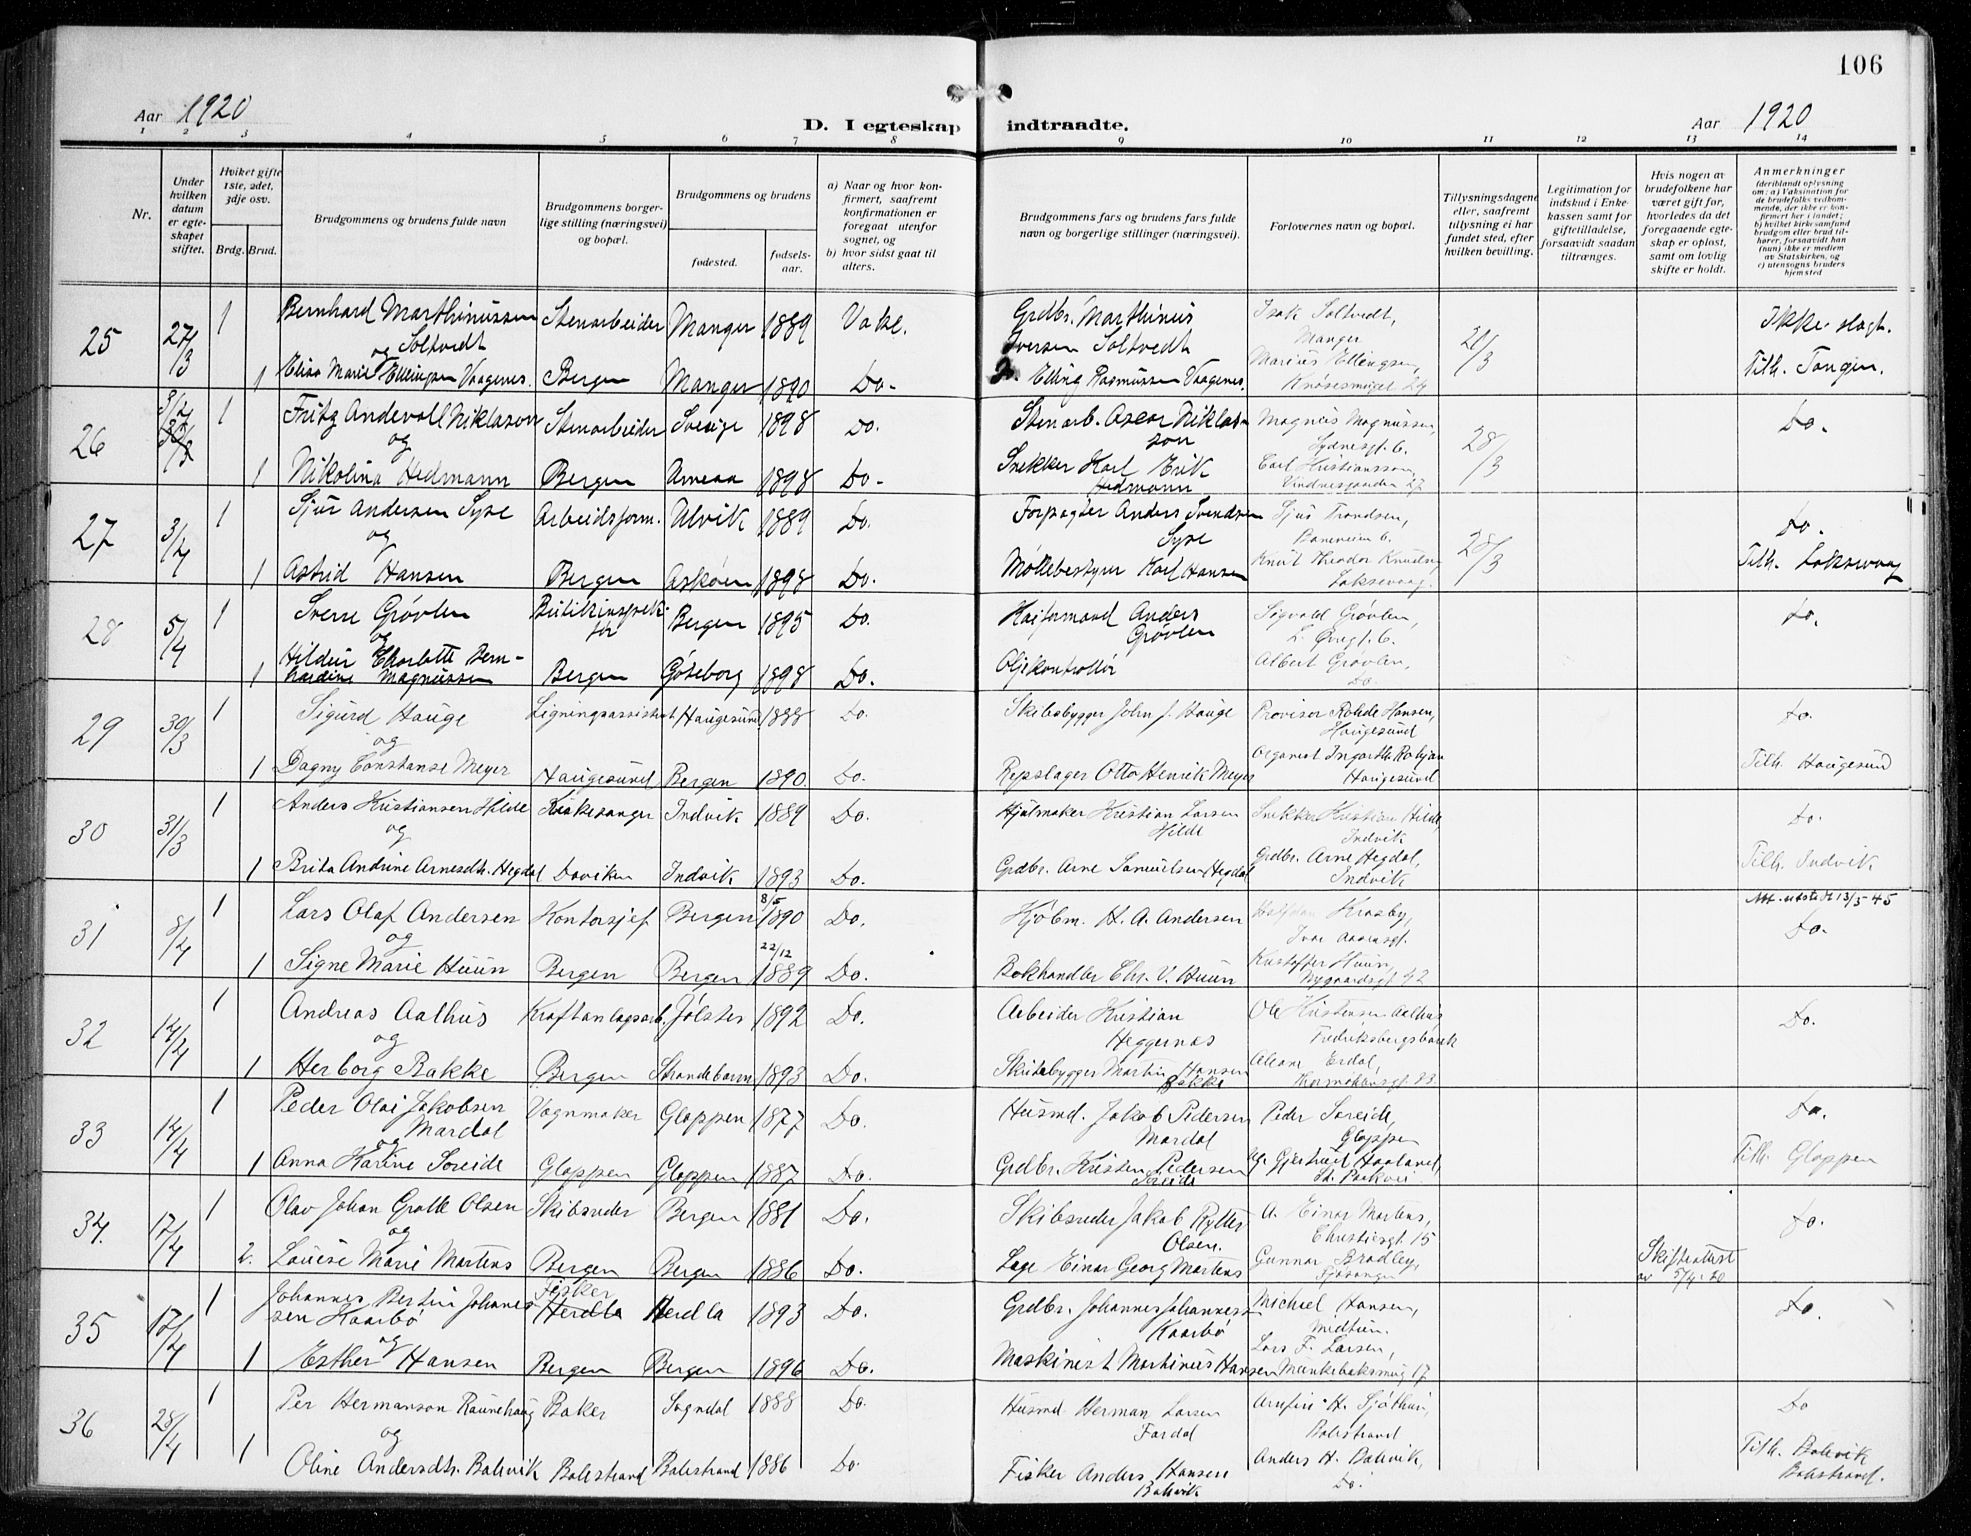 106
Aar 1920
D. I egteskap indtraadte.
Aar 1920
1 2 3 4 5 6 7 8 9 10 11 12 13 14
Nr.
Under hvilken datum er egteskapet stiftet.
Hvilket gifte 1ste, 2det, 3dje osv.
Brdg. Brud.
Brudgommens og brudens fulde navn
Brudgommens borgerlige stilling (næringsvei) og bopæl.
Brudgommens og brudens
fødested.
fødselsaar.
a) Naar og hvor konfirmert, saafremt konfirmationen er foregaat utenfor sognet, og
b) hvor sidst gaat til alters.
Brudgommens fars og brudens fars fulde navn og borgerlige stillinger (næringsvei).
Forlovernes navn og bopæl.
Tillysningsdagene eller, saafremt tillysning ei har fundet sted, efter hvilken bevilling.
Legitimation for indskud i Enkekassen samt for giftetilladelse, forsaavidt saadan tiltrænges.
Hvis nogen av brudefolkene har været gift før, hvorledes da det foregaaende egteskap er opløst, samt om lovlig skifte er holdt.
Anmerkninger
(deriblandt oplysning om: a) Vaksination for de brudefolks vedkommende, der ikke er konfirmert her i landet; b) hvilket kirkesamfund brudgom eller brud tilhører, forsaavidt han (hun) ikke er medlem av Statskirken, og c) utensogns bruders hjemsted
25 27/3 1 Bernhard Marthinussen Soltvedt Stenarbeider Manger 1889 Vake. Grdbr. Marthinus Iversen Soltvedt Isak Soltvedt, Manger 21/3 Ikke slegt.
og
1 Elisa Marie Ellingsen Vaagenes. Bergen Manger 1890 Do. Elling Rasmussen Vaagenes. Marius Ellingsen, Knøsesmuget 24 Tilh. Tongin.
26 1 Fritz Andevall Niklason Stenarbeider Sverige 1898 Do. Stenarb. Oscar Niklasson Magnus Magnussen, Sydnesgt. 6. 28/3 Do.
og
1 Nikolina Hedmann Bergen Umeaa 1898 Do. Snekker Karl Erik Hedmann Carl Kristiansson, Vindnesgaarden 27
27 3/4 1 Sjur Andersen Syse Arbeidsform. Ulvik 1889 Do. Forpagter Anders Svendsen Syse Sjur Trondsen, Baneveien 6. 28/3 Do.
og
1 Astrid Hansen Bergen Askøen 1898 Do. Møllebestyrer Karl Hansen Knut Theodor Knudsen Laksevaag. Tilh. Laksevaag
28 5/4 1 Sverre Grøvlen Butikinspektør Bergen 1895 Do. Kaiformand Anders Grøvlen Sigvald Grøvlen, L. Øvregt. 6. Do.
og
1 Hildur Charlotte Bernhardine Magnussen Bergen Göteborg 1898 Do. Oljekontrollør Albert Grøvlen, Do.
29 30/3 1 Sigurd Hauge Ligningsassistent Haugesund 1888 Do. Skibsbygger John J. Hauge Provisor Rohde Hansen, Haugesund Do.
og
1 Dagny Constanse Meyer Haugesund Bergen 1890. Do. Repslager Otto Henrik Meyer Organist Haugesund Tilh. Haugesund
30 31/3 1 Anders Kristiansen Hilde Kirkesanger Indvik 1889 Do. Hjulmaker Kristian Larsen Hilde Snekker Kristian Hilde, Indvik Do.
og
1 Brita Andrine Arnesdtr. Hegdal Daviken Indvik 1893 Do. Grdbr. Arne Samuelsen Hegdal Grdbr. Arne Hegdal, Indvik Tilh. Indvik
31 8/4 1 Lars Olaf Andersen Kontorsjef Bergen 8/5 1890 Do. Kjøbm. H. A. Andersen Halfdan Krosby, Ivar Aasensgt. Att. utstedt 13/5-45 Do.
og
1 Signe Marie Huun Bergen Bergen 22/12 1889 Do. Bokhandler Chr. V. Huun Kristoffer Huun, Nygaardsgt 92
32 14/4 1 Andreas Aalhus Kraftanlagsarb. Jølster 1892 Do. Arbeider Kristian Heggernæs Ole Kristensen Aalhus Fredriksbergsbakk Do.
og
1 Herborg Bakke Bergen Strandebarm 1893 Do. Skibsbygger Martin Hansen Bakke Erdal,
33 14/4 1 Peder Olai Jakobsen Mardal Vognmaker Gloppen 1877 Do. Husmd. Jakob Pedersen Mardal Peder Soreide, Gloppen Do.
og
1 Anna Karine Soreide Gloppen Gloppen 1887 Do. Grdbr. Kristen Pedersen Soreide Gjertrud Haaland, St. Parkvei Tilh. Gloppen
34. 17/4 1 Olav Johan Grolle Olsen Skibsreder Bergen 1881 Do. Skibsreder Jakob Rytter Olsen. A. Einar Martens, Christiesgt. 15 Do.
og
2. Louise Marie Martens Bergen Bergen 1886 Do. Læge Einar Georg Martens Gunnar Bradley, Skifteattest av 5/4-20
35 17/4 1 Johannes Bertin Johannessen Kaarbø Fisker Herdla Herdla 1893 Do. Grdbr. Johannes Johannessen Kaarbø Michael Hansen, Midtun. Do.
og
1 Esther Hansen Bergen Bergen 1896 Do. Maskinist Martinus Hansen Lars F. Larsen, Munkebaksmug 17
36 28/4 1 Per Hermanson Raunehaug Baker Sogndal 1888 Do. Husmd Herman Larsen Fardal H. Sjøthun, Balestrand Do
og
1 Oline Andersdtr. Balevik Balestrand Balestrand 1886 Do. Fisker Anders Hansen Balevik Anders H. Balevik, Do. Tilh. Balevik Balestrand.